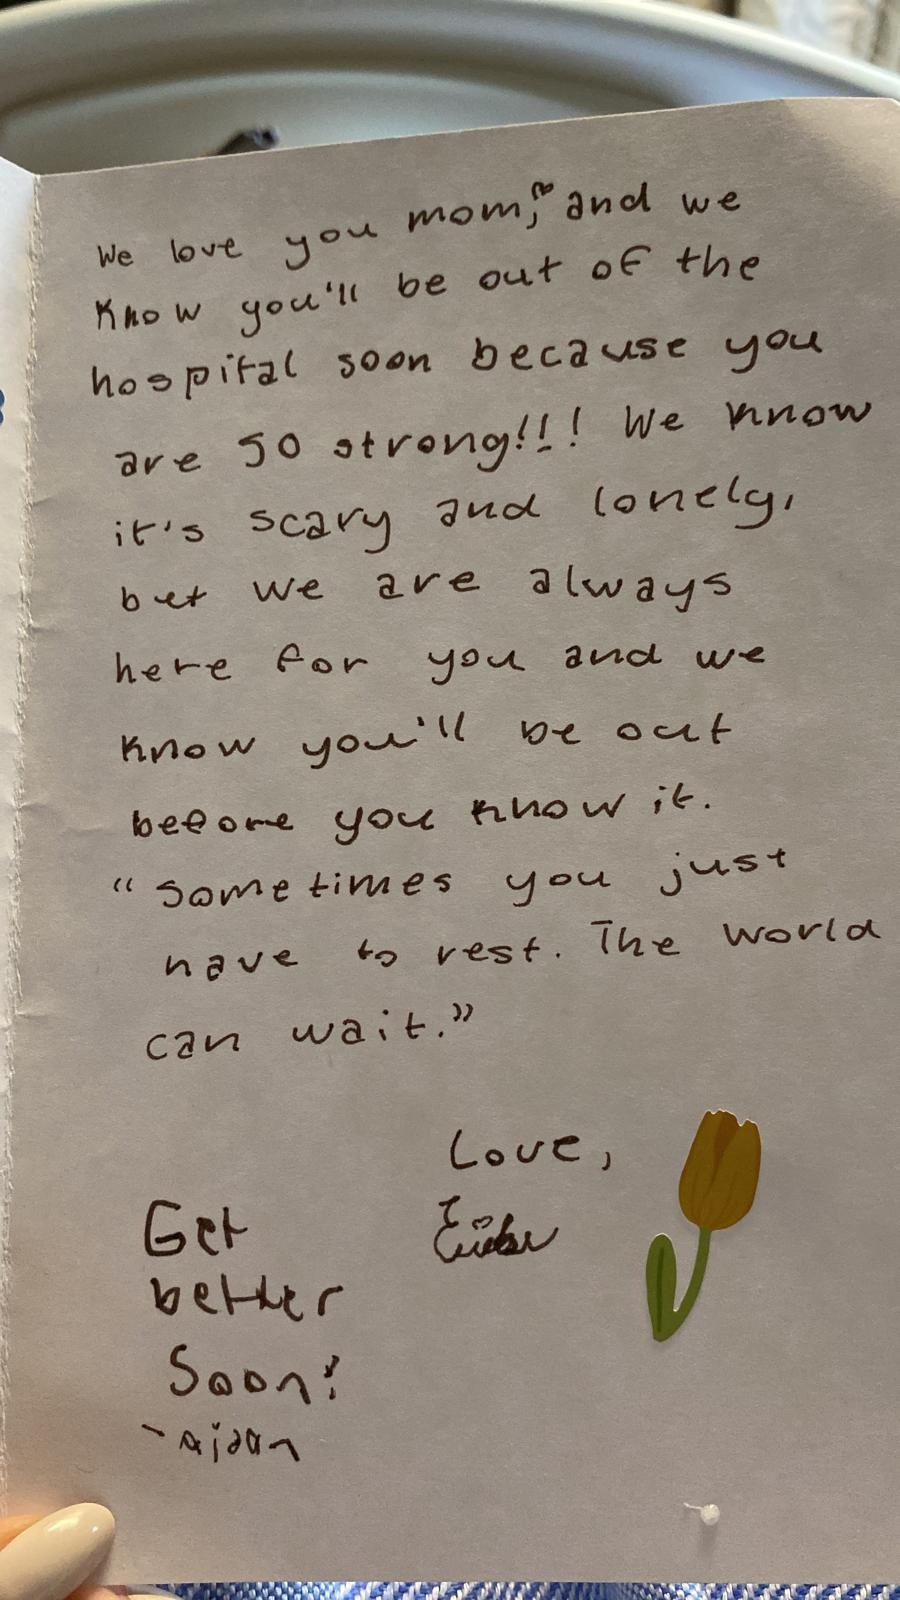 We love you mom, and we
know you'll be out of the
hospital soon because you
are SO strong!!! We know
it's scary and lonely,
but we are always
here for you and we
know you'll be out
before you know it.
“Sometimes you just
have to rest. The world
can wait.”
Love,
Get
better
Soon!
-aidan